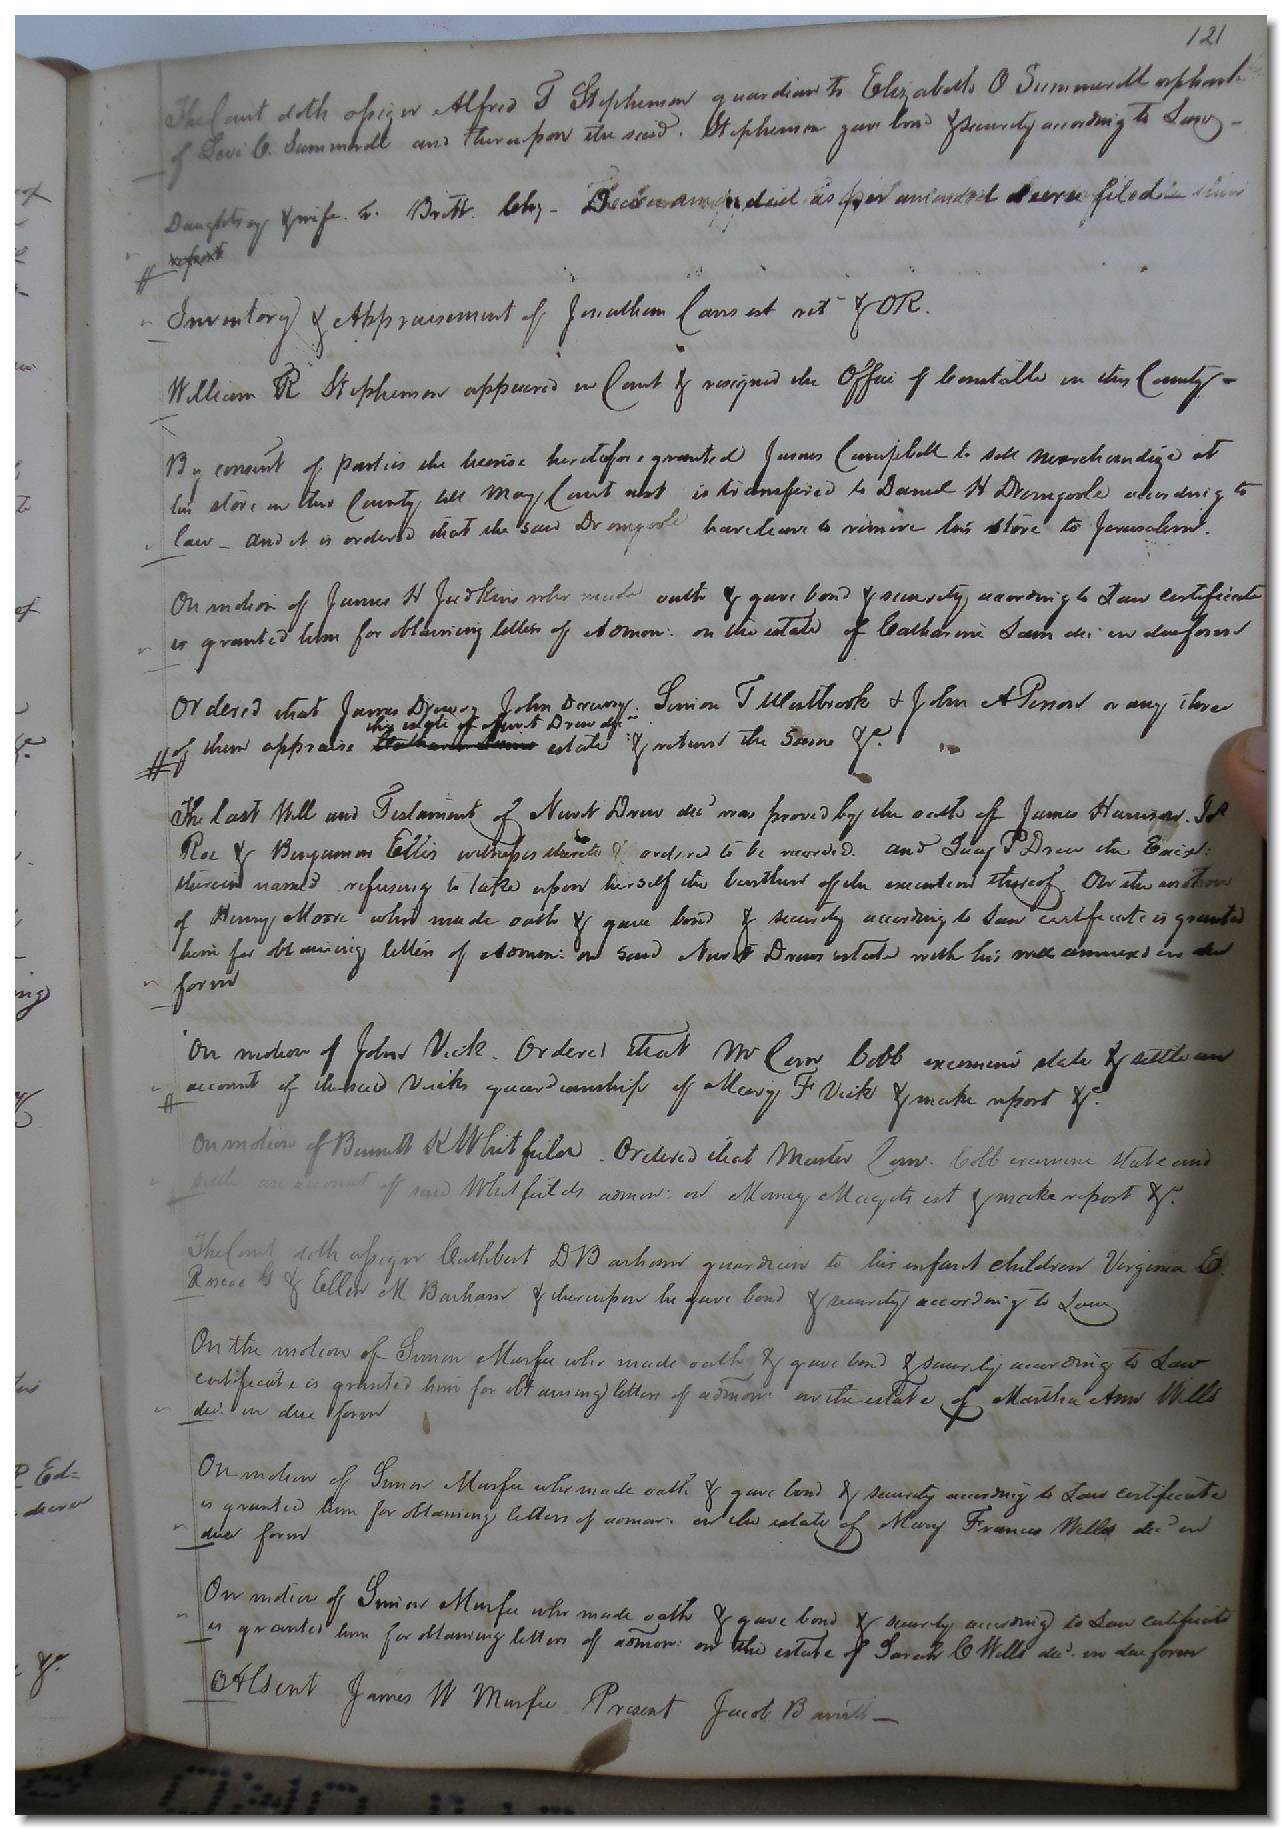 121
The Court doth assign Alfred T Stephenson guardian to Elizabeth O Summerell orphan
of Levi C. Summerell and thereupon the said Stephenson gave bond & security according to Law -
Daughtrey & wife v. Britt. Chy - Decree amended as per amended decree filed -
report
Inventory & Appraisement of Jonathan est ret & OR.
William R Stephenson appeared in Court & resigned the Office of Constable in this County -
By consent of parties the license heretofore granted James Campbell to sell merchandize at
his store in this County till May Court next is transfered to Daniel H Dromgoole according to
law - and it is ordered that the said Dromgoole have leave to remove his store to Jerusalem.
On motion of James H Judkins who made oath & gave bond & security according to Law certificate
is granted him for obtaining letters of Admon: on the estate of Catharine decd in due form
Ordered that James Drewry John Drewry. Simon T Westbrook & John A Person or any three
the estate of Newit Drew decd
of them appraise estate & return the same &c.
The last Will and Testament of Newit Drew decd was proved by the oath of James Harrison. Jos
Roe & Benjamin Ellis witnesses thereto & ordered to be recorded. and Lucy P Drew the Exix:
therein named refusing to take upon herself the burthen of the execution thereof On the motion
of Henry Moore who made oath & gave bond & security according to Law certificate is granted
him for obtaining letters of Admon: on said Newit Drews estate with his will annexed in due
form
On motion of John Vick. Ordered that Mr Comr Cobb examine state & settle an
account of the said Vicks guardianship of Mary F Vick & make report &c.
On motion of Bennett K Whitfield. Ordered that Master Comr. Cobb examine state and
settle an account of said Whitfields admon: on est & make report &c.
The Court doth assign Cuthbert D Barham guardian to his infant children Virginia E.
Roscoe G & Ellen M Barham & thereupon he gave bond & security according to Law
On the motion of Simon Murfee who made oath & gave bond & security according to Law
certificate is granted him for obtaining letters of admon: on the estate of Martha Ann Wills
decd. in due form
On motion of Simon Murfee who made oath & gave bond & security according to Law certificate
is granted him for obtaining letters of admon: on the estate of Mary Frances Wills decd in
due form
On motion of Simon Murfee who made oath & gave bond & security according to Law certificate
is granted him for obtaining letters of admon: on the estate of Sarah C Wills decd. in due form
Absent James W Murfee Present Jacob Barrett -